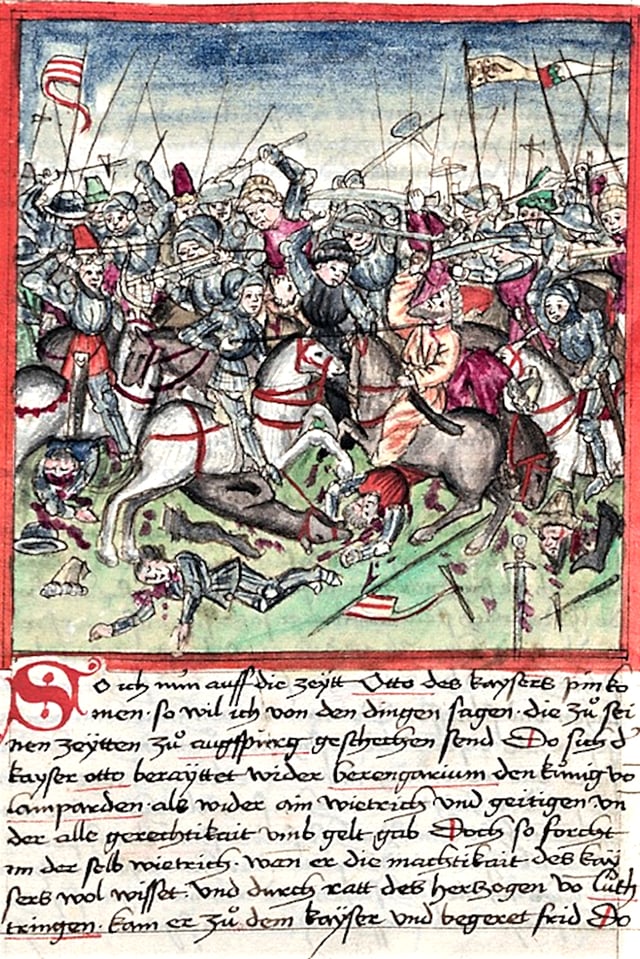 So ich nun auff die zeÿtt Otto des kaysers pin ko
men · so wil ich von den dingen sagen · die zů sei
nen zeÿtten zů augspurg geschechen send Do sich d'
kayser otto beraÿttet wider berengarium den kúnig vo
lamparden · als wider ain wietrich vnd geitigen vn
der alle gerechtikait vmb gelt gab Doch so forcht
im der selb wietrich · wan er die machtikait des kaÿ
sers wol wisset · vnd durch ratt des herczogen vo luth
tringen · kam er zů dem kaÿser vnd begeret frid Do